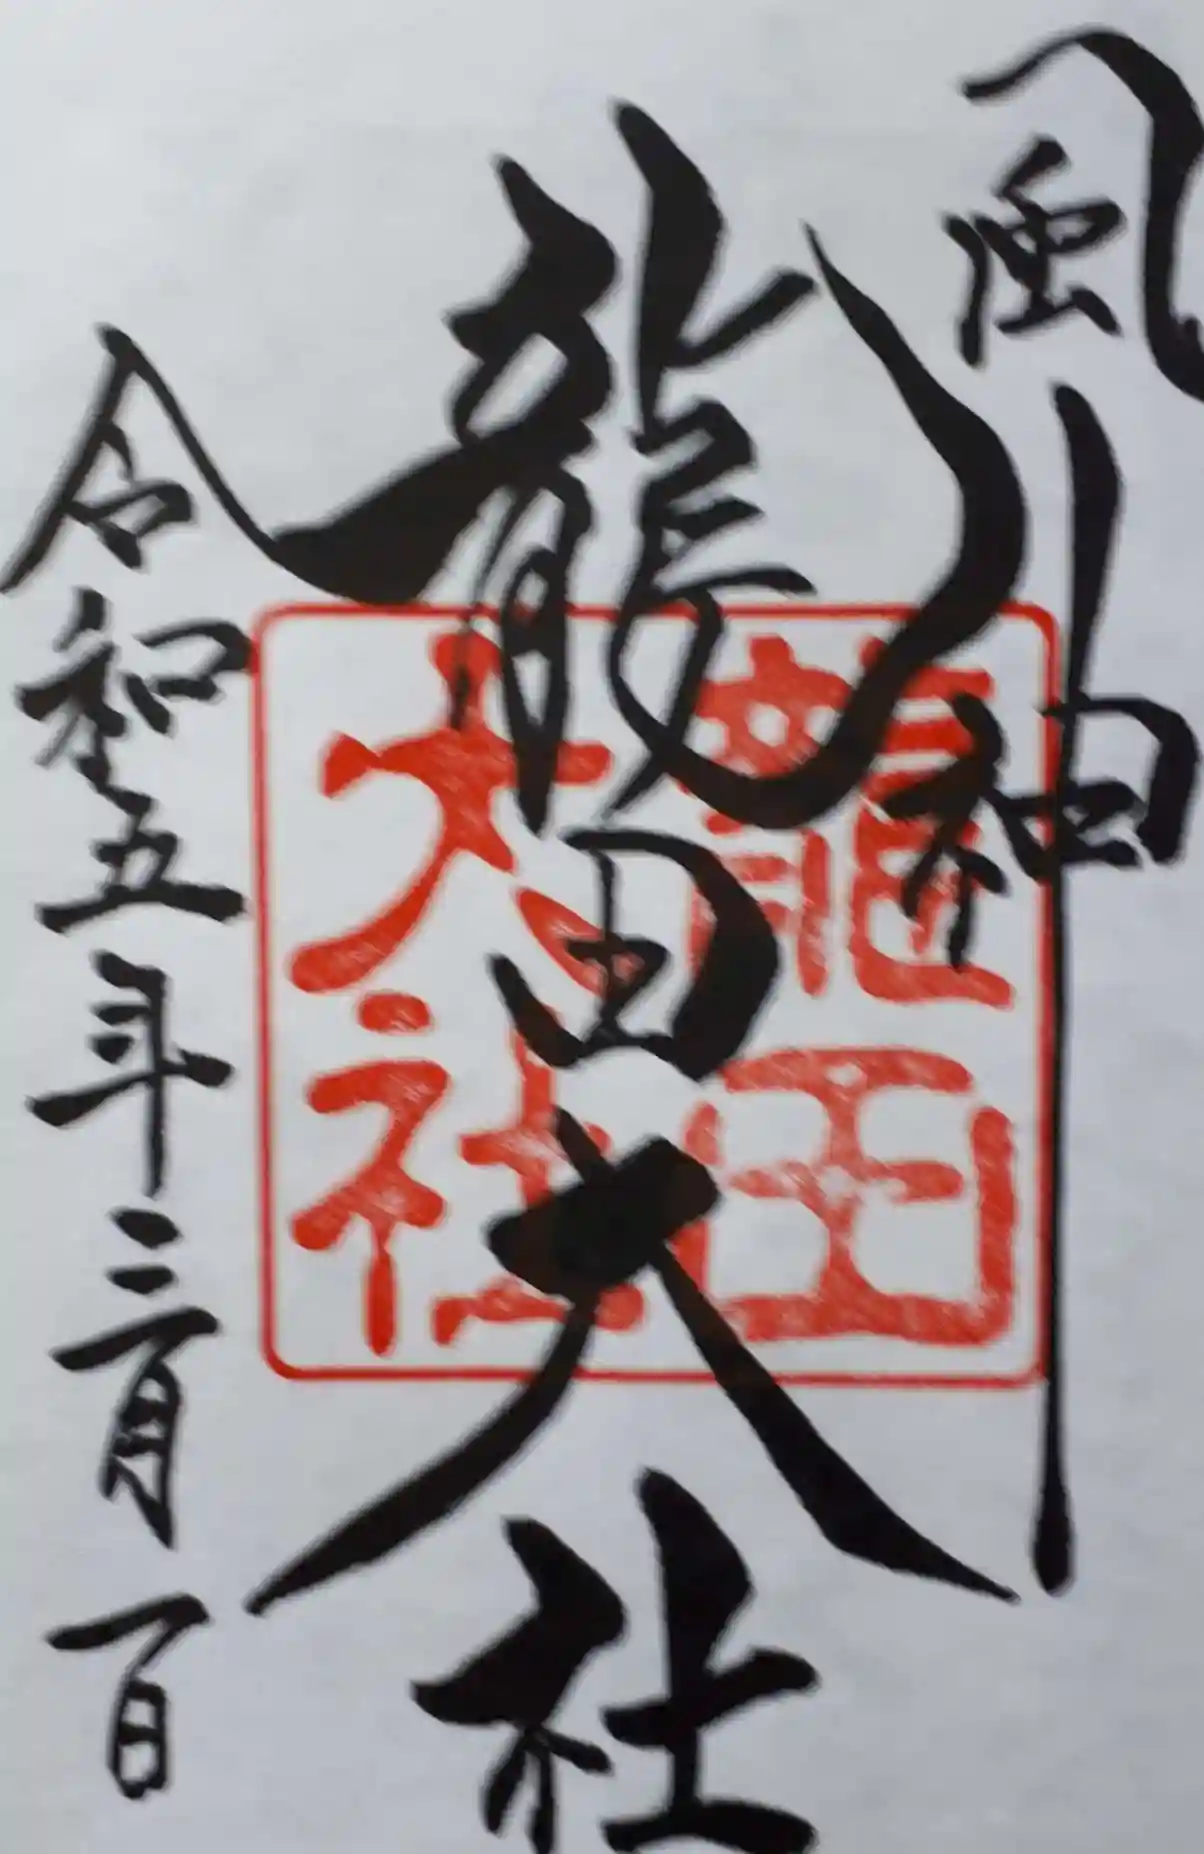 風神
龍田大社
令和五年三月一日
龍田
大社